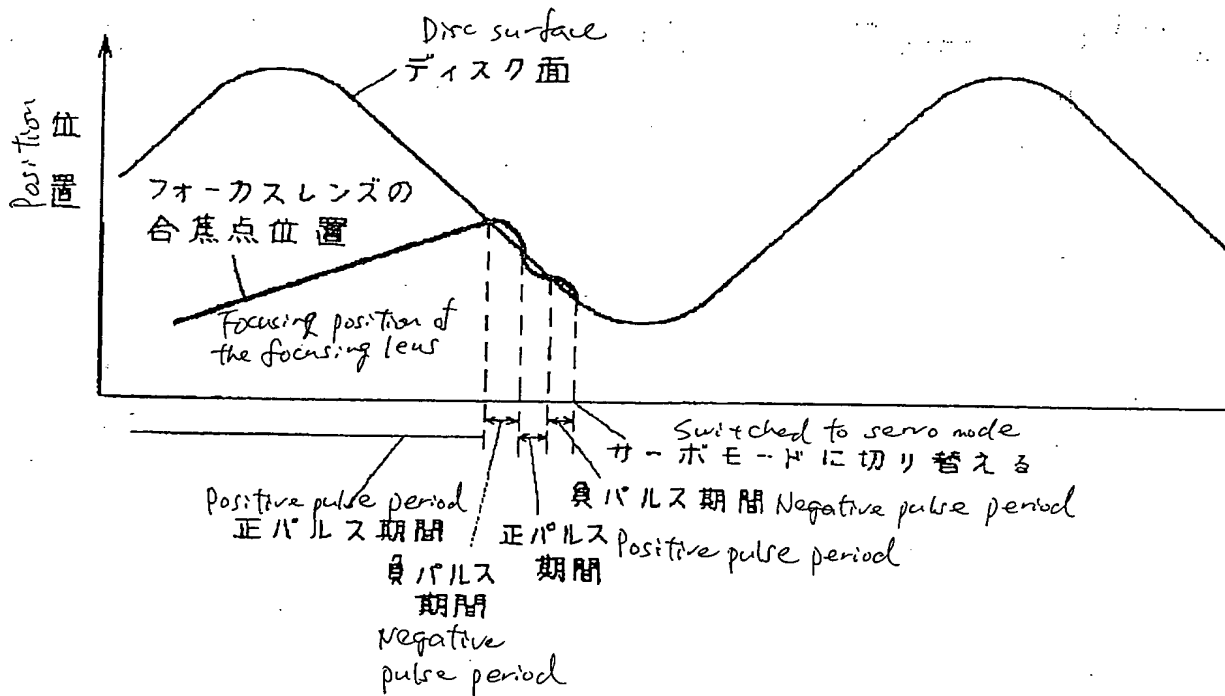 Disc surface
ディスク面
Position
位置
フォーカスレンズの
合焦点位置
Focusing position of
the focusing lens
Switched to servo mode
サーボモードに切り替える
Positive pulse period
正パルス期間
負パルス期間 Negative pulse period
正パルス
期間
Positive pulse period
負パルス
期間
Negative
pulse period